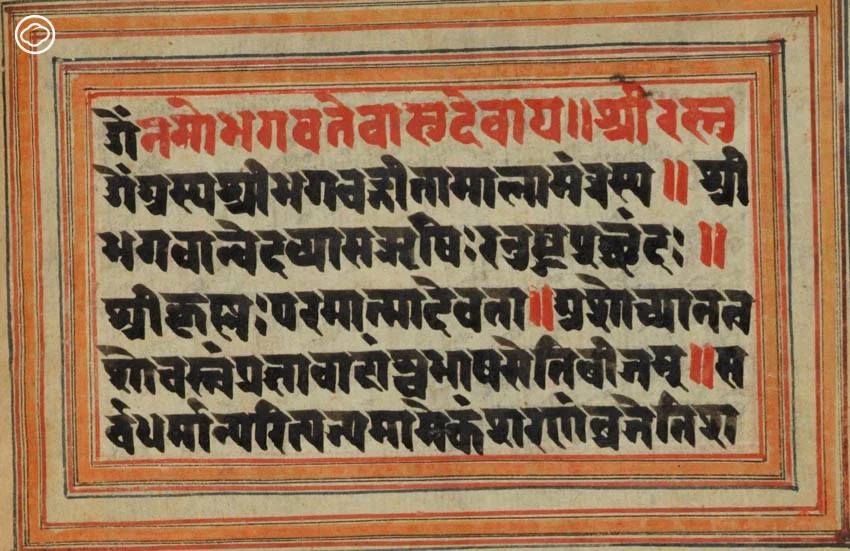 ॐनमोभगवतेवासुदेवाय॥श्रीरस्तु
ॐअस्यश्रीभगवद्गीतामालामंत्रस्य॥श्री
भगवान्वेदव्यासऋषिः
श्रीकृष्णःपरमात्मादेवता॥अशोच्यानन्व
शोचस्त्वंप्रज्ञावादांश्चभाषसेतिबीजम्॥स
र्वधर्मान्परित्यज्यमामेकंशरणंव्रजेतिश